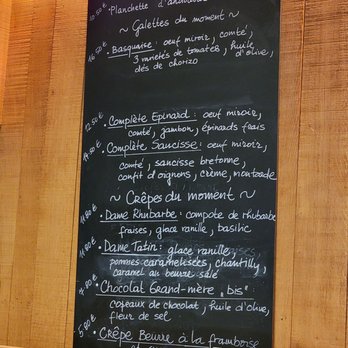 10.50€ Planchette d'an
~ Galettes du moment ~
16.50€ • Basquaise : oeuf miroir, comté,
3 variétés de tomates, huile d'olive,
dés de chorizo
12.50€ • Complète Epinard : oeuf miroir,
comté, jambon, épinards frais
• Complète Saucisse : oeuf miroir,
comté, saucisse bretonne,
confit d'oignons, crème, moutarde
~ Crêpes du moment ~
11.80€ • Dame Rhubarbe : compote de rhubarbe
fraises, glace vanille, basilic
• Dame Tatin : glace vanille,
pommes caramélisées, chantilly,
caramel au beurre salé
• Chocolat Grand-mère "bis" :
copeaux de chocolat, huile d'olive,
fleur de sel
• Crêpe Beurre à la framboise